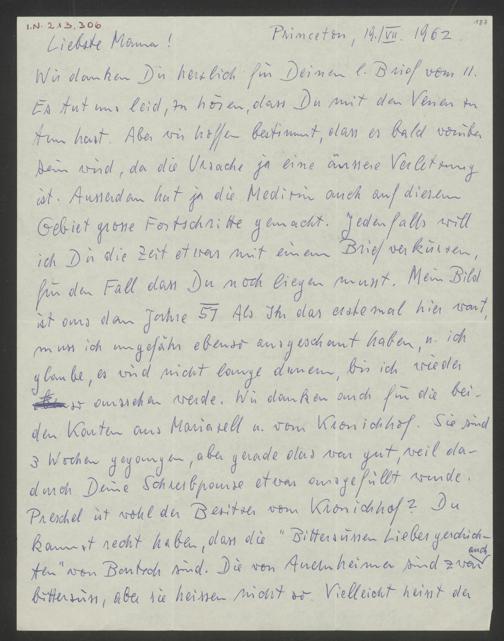 I.N. 213.306
187
Princeton, 19./VII. 1962
Liebste Mama!
Wir danken Dir herzlich für Deinen l. Brief vom 11.
Es tut uns leid, zu hören, dass Du mit den Venen zu
tun hast. Aber wir hoffen bestimmt, dass es bald vorüber
sein wird, da die Ursache ja eine äussere Verletzung
ist. Ausserdem hat ja die Medizin auch auf diesem
Gebiet grosse Fortschritte gemacht. Jedenfalls will
ich Dir die Zeit etwas mit einem Brief verkürzen,
für den Fall dass Du noch liegen musst. Mein Bild
ist aus dem Jahre 57 Als Ihr das erstemal hier wart,
muss ich ungefähr ebenso ausgeschaut haben, u. ich
glaube, es wird nicht lange dauern, bis ich wieder
so aussehen werde. Wir danken auch für die bei-
den Karten aus Mariazell u. vom Kronichhof. Sie sind
3 Wochen gegangen, aber gerade das war gut, weil da-
durch Deine Schreibpause etwas ausgefüllt wurde.
Preschel ist wohl der Besitzer vom Kronichhof? Du
kannst recht haben, dass die "Bittersüssen Liebesgeschich-
ten" von Bartsch sind. Die von Auernheimer sind zwar auch
bittersüss, aber sie heissen nicht so Vielleicht heisst der